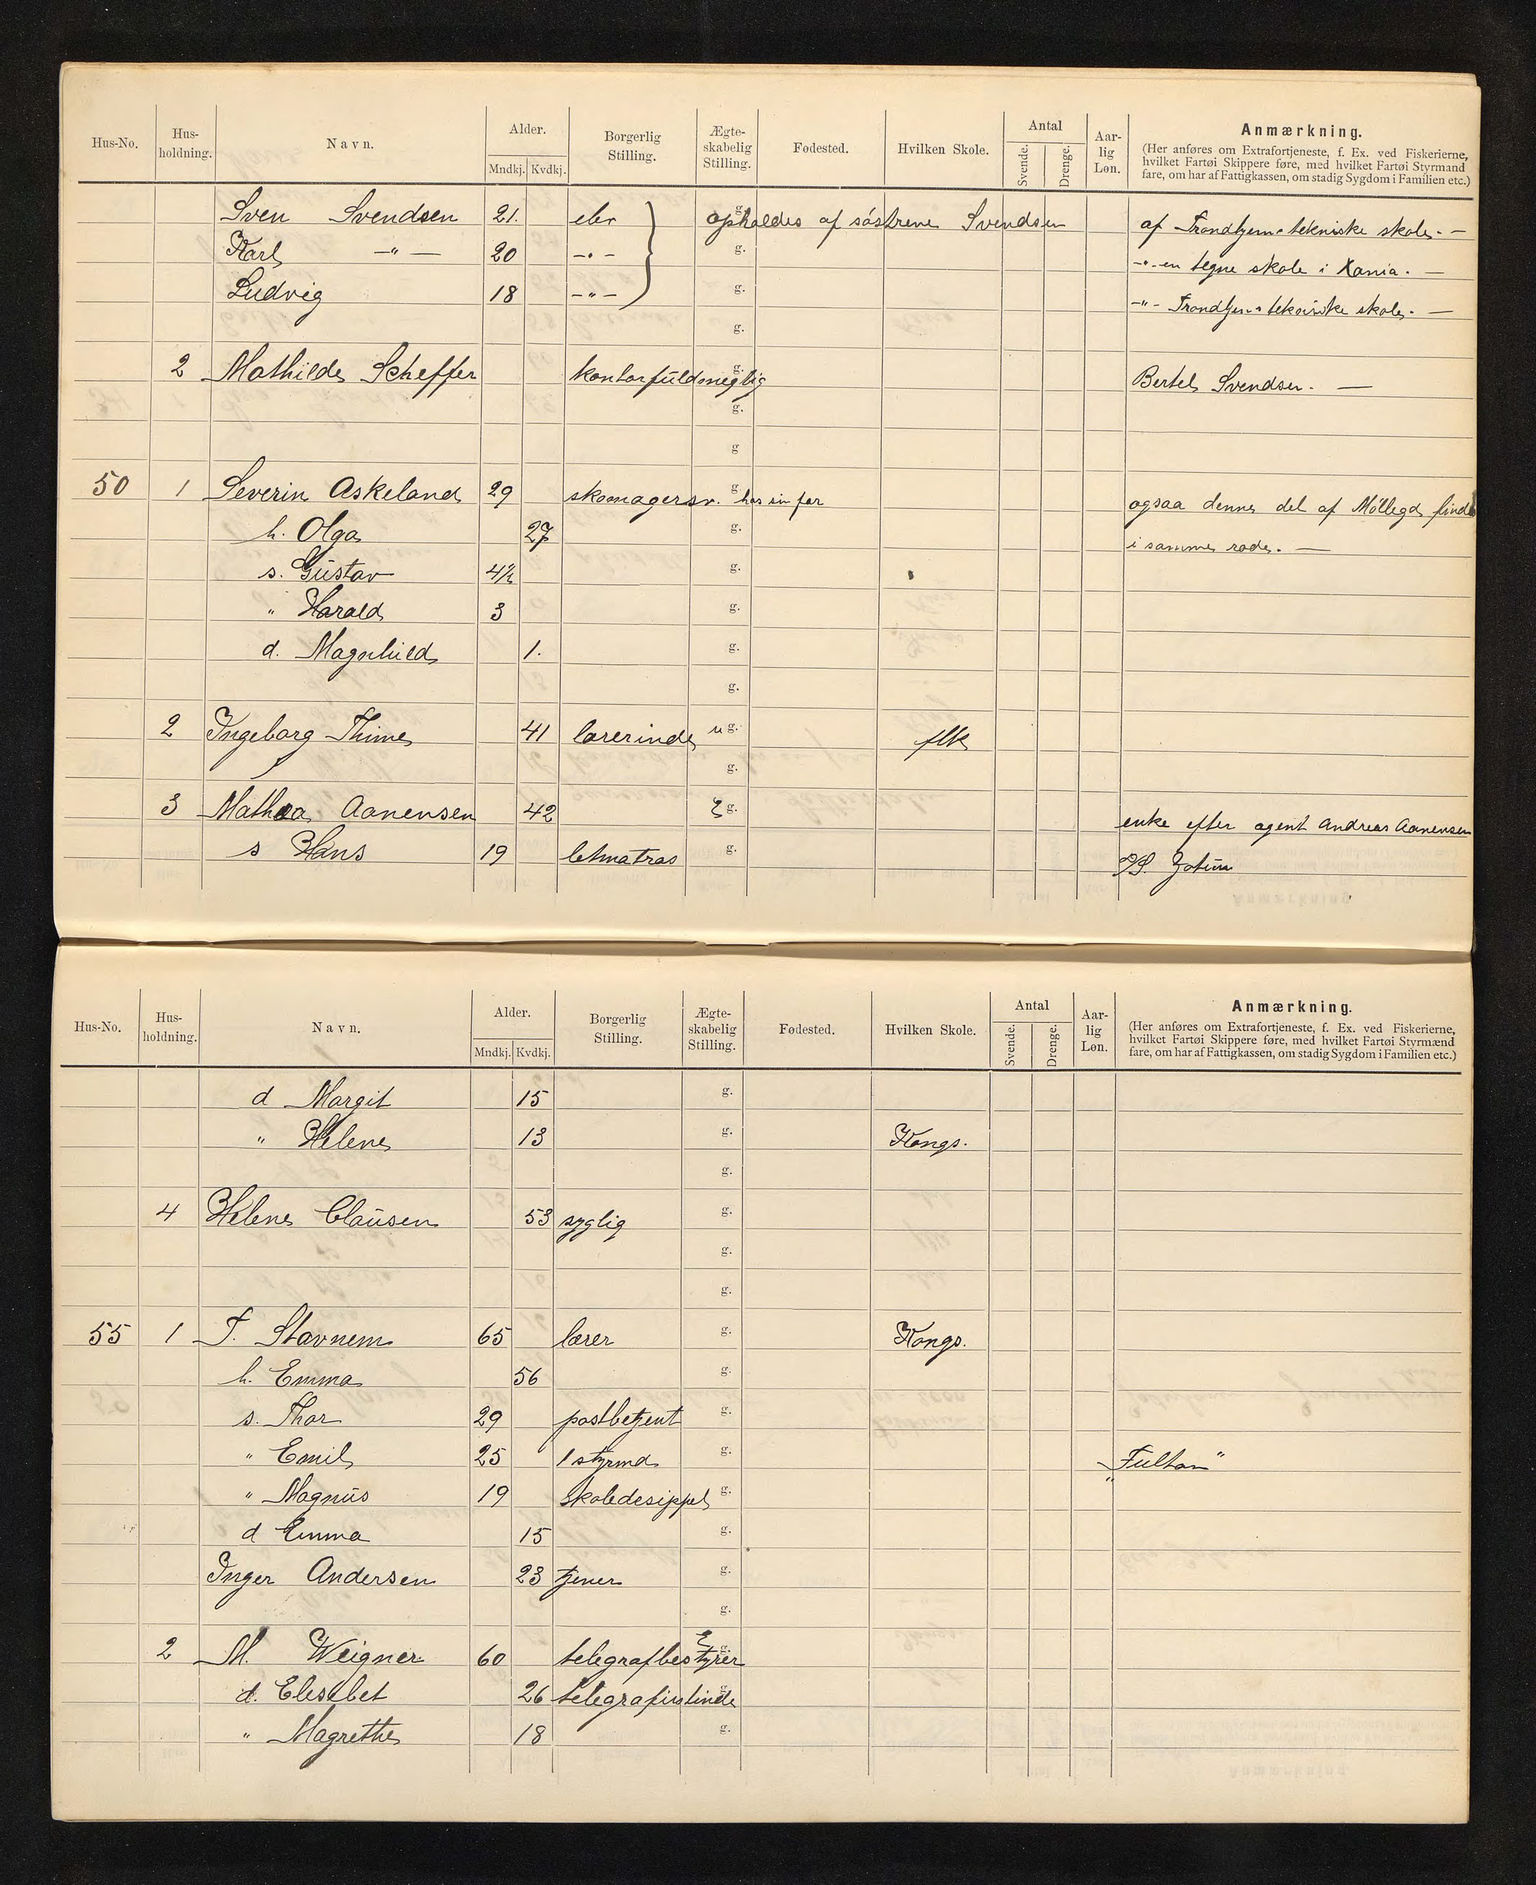 Hus-No. Hus-holdning. Navn. Alder. Mndkj. Kvdkj. Borgerlig Stilling. Ægte-skabelig Stilling. Fødested. Hvilken Skole. Antal Svende. Drenge. Aar-lig Løn. Anmærkning.
(Her anføres om Extrafortjeneste, f. Ex. ved Fiskerierne, hvilket Fartøi Skippere føre, med hvilket Fartøi Styrmænd fare, om har af Fattigkassen, om stadig Sygdom i Familien etc.)
Sven Svendsen 21. elev opholdes af søstrene Svendsen af Trondhjems tekniske skole. —
Karl —"— 20 —"— g. —"— en tegne skole i Kania. —
Ludvig 18 —"— g. —"— Trondhjems tekniske skole. —
g.
2 Mathilde Scheffer kontorfuldmegtig g. Bertel Svendsen. —
g.
g
50 1 Severin Askeland 29 skomagersv. g har sin far ogsaa denne del af Møllegd findes
h. Olga 27 g. i samme rode. —
s. Gustav 4½ g.
" Harald 3 g.
d. Magnhild 1. g.
g.
2 Ingeborg Thime 41 lærerinde ug. flk
g.
3 Mathea Aanensen 42 E g. enke efter agent Andreas Aanensen
s Hans 19 letmatros g. D/S. Jotun
Hus-No. Hus-holdning. Navn. Alder. Mndkj. Kvdkj. Borgerlig Stilling. Ægte-skabelig Stilling. Fødested. Hvilken Skole. Antal Svende. Drenge. Aar-lig Løn. Anmærkning.
(Her anføres om Extrafortjeneste, f. Ex. ved Fiskerierne, hvilket Fartøi Skippere føre, med hvilket Fartøi Styrmænd fare, om har af Fattigkassen, om stadig Sygdom i Familien etc.)
d Margit 15 g.
" Helene 13 g. Kongs.
g.
4 Helene Clausen 53 syglig g.
g.
g.
55 1 T. Stavnem 65 lærer g. Kongs.
h. Emma 56 g.
s. Thor 29 postbetjent g.
" Emil 25 1 styrmd g. „Fulton"
" Magnus 19 skoledesippel g.
d Emma 15 g.
Inger Andersen 23 tjener g.
g.
2 M. Weigner 60 telegrafbestyrer E g.
d. Elesebet 26 telegrafistinde g.
" Magrethe 18 g.